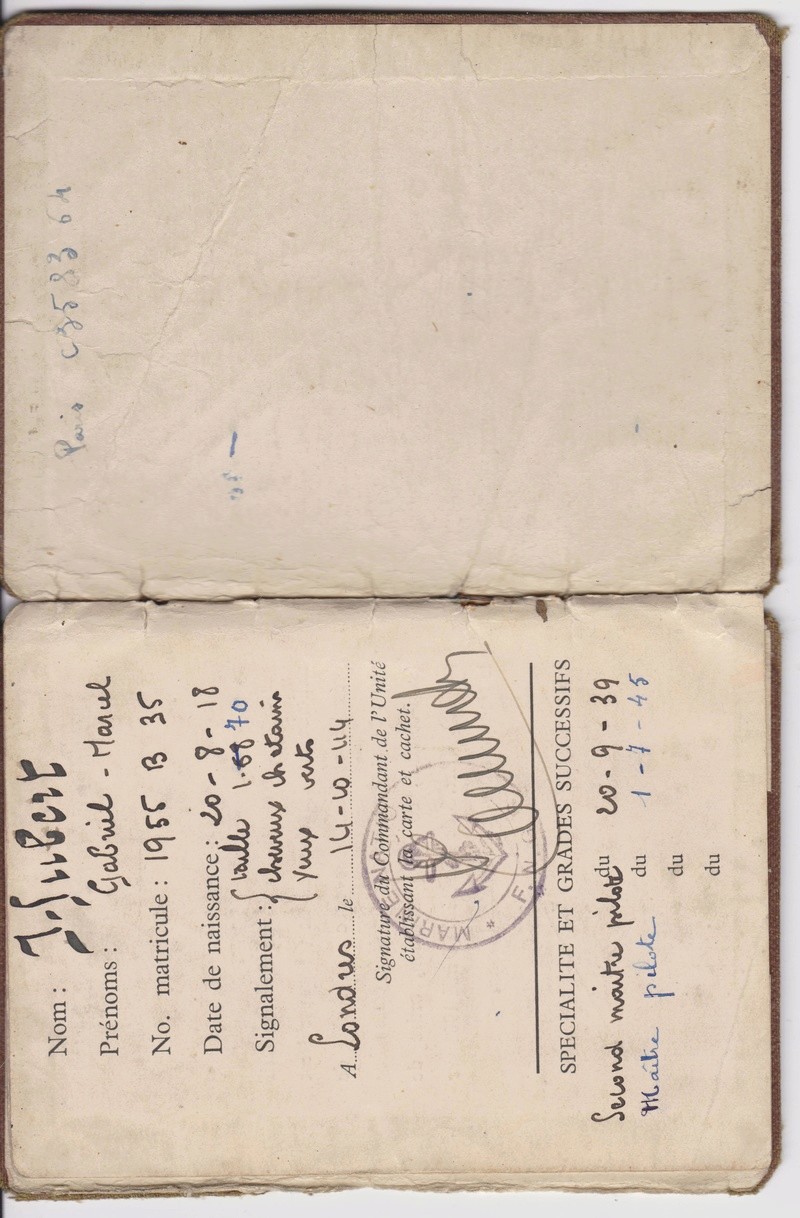 Nom :
Prénoms : Gabriel - Marcel
No. matricule : 1955 B 35
Date de naissance : 20 - 8 - 18
Signalement : { taille 1.68 70
cheveux chatain
yeux verts
A Londres le 14-10-44
Signature du Commandant de l'Unité
établissant la carte et cachet.
MARINE
F.N.
SPECIALITE ET GRADES SUCCESSIFS
Second maître pilote du 20 - 9 - 39
Maître pilote du 1 - 7 - 45
du
du
Paris